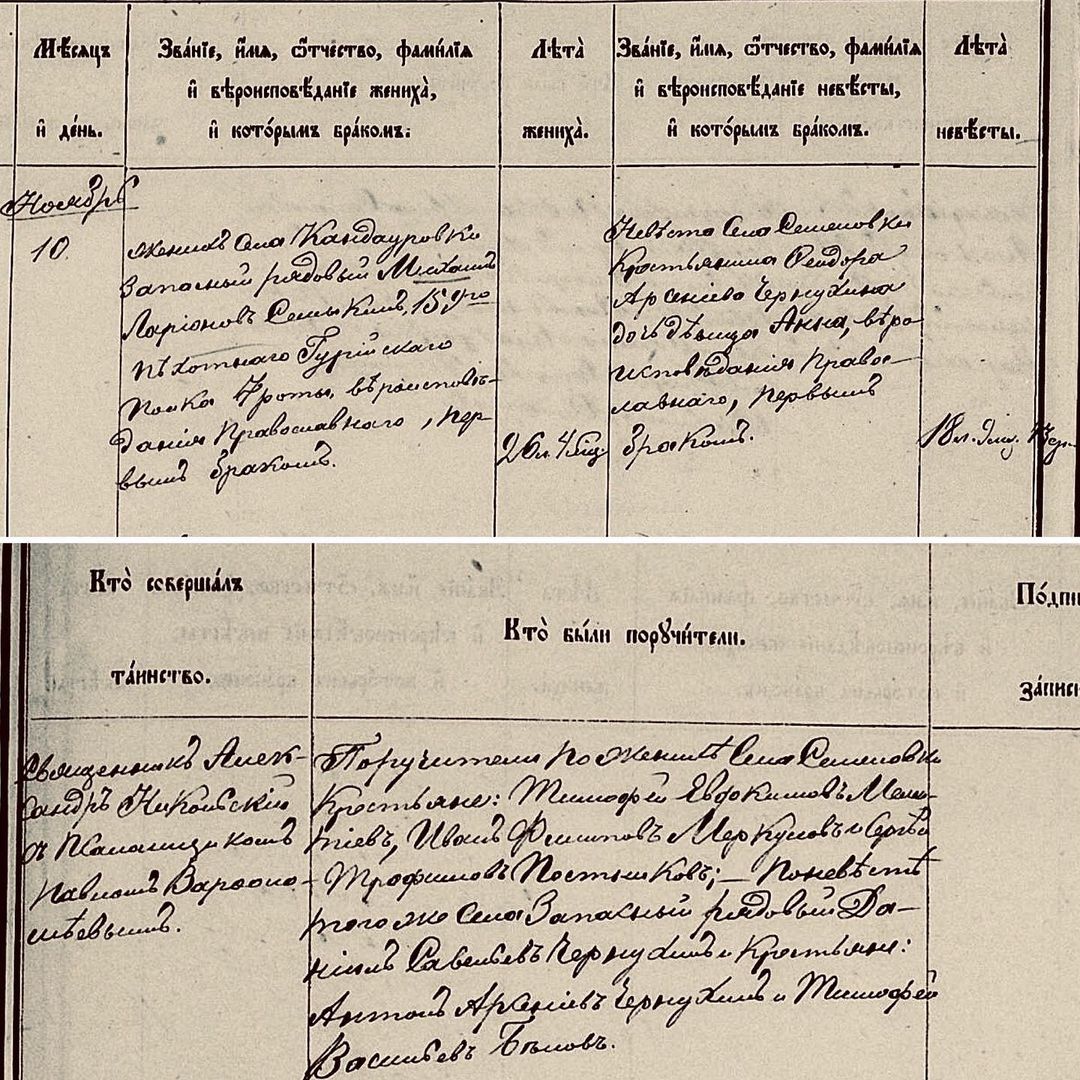 Мѣ́сяцъ
и҆ де́нь.
Зва́нїе, и҆́мя, ѻ҆́тчество, фами́лїя
и҆ вѣроисповѣ́данїе жениха̀,
и҆ кото́рымъ бра́комъ.
Лѣта̀
жениха̀.
Зва́нїе, и҆́мя, ѻ҆́тчество, фами́лїя
и҆ вѣроисповѣ́данїе невѣ́сты,
и҆ кото́рымъ бра́комъ.
Лѣта̀
невѣ́сты.
Ноябрь
10.
Женихъ села Кандауровки
запасный рядовый Михаилъ
Ларіоновъ Семыкинъ, 159го
пѣхотнаго Гурійскаго
полка 4 роты, вѣроисповѣ-
данія Православнаго, пер-
вымъ бракомъ.
26 л. 4 мѣц.
Невѣста села Семеновки
Крестьянина Ѳеодора
Арсеніева Чернухина
дочь дѣвица Анна, вѣро
исповѣданія Право-
славнаго, первымъ
бракомъ.
18 л. 9 мц.
Кто̀ соверша́лъ
та́инство.
Кто̀ бы́ли порꙋчи́тели.
По́дпи
за́писи
Священникъ Алек-
сандръ Никольскій
съ псаломщикомъ
Павломъ Варѳоло-
мѣевымъ.
Поручители по женихѣ села Семеновки
Крестьяне: Тимофей Евдокимовъ Мелен-
тіевъ, Иванъ Филиповъ Меркуловъ и Сергѣй
Трофимовъ Постниковъ; — по невѣстѣ
того же села запасный рядовый Да-
ніилъ Савельевъ Чернухинъ и Крестьяне:
Антонъ Арсеніевъ Чернухинъ и Тимофей
Васильевъ Бѣловъ.